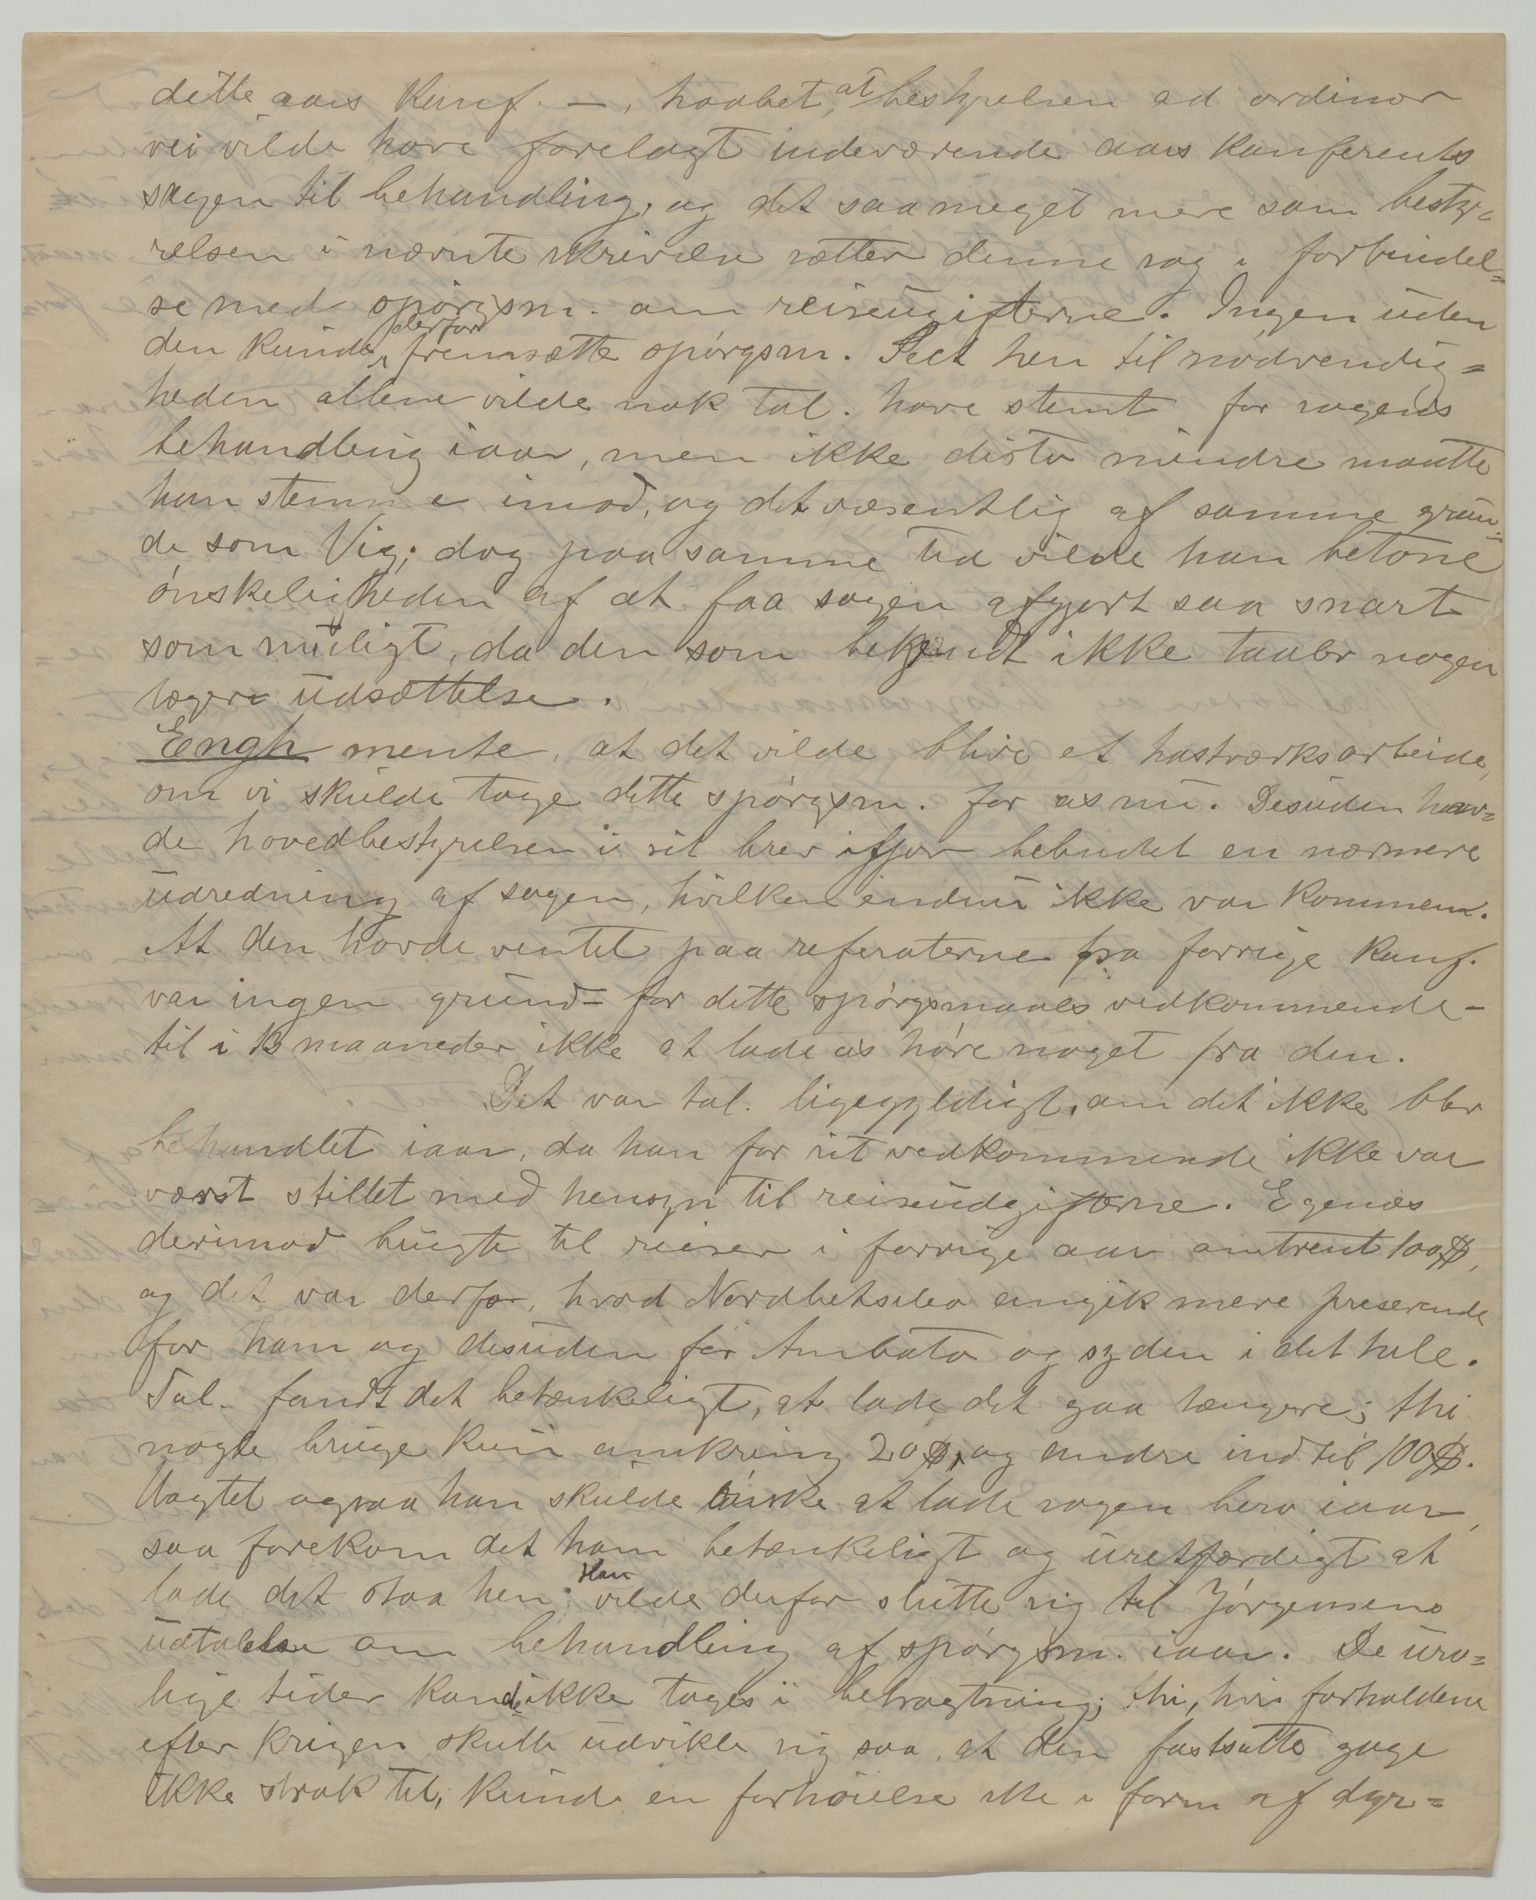 dette aars Konf. —, haabet, at bestyrelsen ad ordinær
vei vilde have forelagt indeværende aars Konferents
sagen til behandling, og det saa meget mere som besty=
relsen i nævnte skrivelse sætter denne sag i forbindel=
se med spörgsm. om reiseugifterne. Ingen uden
den kunde derfor fremsætte spörgsm. Seet hen til nödvendig=
heden allene vilde nok tal. have stemt for sagens
behandling iaar, men ikke disto mindre maatte
han stemme imod, og det væsentlig af samme grun=
de som Vig; dog paa samme tid vilde han betone
önskeligheden af at faa sagen afgjort saa snart
som muligt, da den som bekjendt ikke taaler nogen
længere udsættelse.
Engh mente, at det vilde blive et hastværksarbeide,
om vi skulde tage dette spörgsm. for os nu. Desuden hav=
de hovedbestyrelsen i sit brev ifjor bebudet en nærmere
udredning af sagen, hvilken endnu ikke var kommen.
At den havde ventet paa referaterne fra forrige Konf.
var ingen grund – for dette spörgsmaals vedkommende –
til i 13 maaneder ikke at lade os höre noget fra den.
Det var tal. ligegyldigt, om det ikke blev
behandlet iaar, da han for sit vedkommende ikke var
værst stillet med hensyn til reiseudgifterne. Egenæs
derimod brugte til reiser i forrige aar omtrent 100$,
og det var derfor, hvad Nordbetsileo angik mere preserende
for ham og desuden for Ambato og syden i det hele.
Tal. fandt det betænkeligt, at lade det gaa længere; thi
nogle bruge kun omkring 20$, og andre indtil 100$.
Uagtet ogsaa han skulde önske at lade sagen bero iaar,
saa forekom det ham betænkeligt og uretfærdigt at
lade det staa hen. Han vilde derfor slutte sig til Jörgensens
udtalelse om behandling af spörgsm. iaar. De uro=
lige tider kand ikke tages i betragtning; thi, hvis forholdene
efter krigen skulle udvikle sig saa, at den fastsatte gage
ikke strak til, kunde en forhöielse ske i form af dyr=